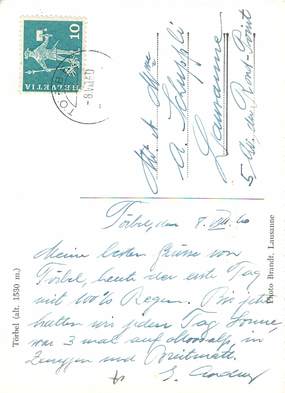 HELVETIA
10
Mr. et Mme
A. Schüppli
Lausanne
5 Av. du Rond-Point
Törbel, den 8. VII. 60
Meine besten Grüsse von
Törbel, heute der erste Tag
mit 100% Regen. Bis jetzt
hatten wir jeden Tag Sonne,
war 3 mal auf in
Zeneggen und Breitmatt.
Törbel (alt. 1550 m.)
Photo Brandt, Lausanne